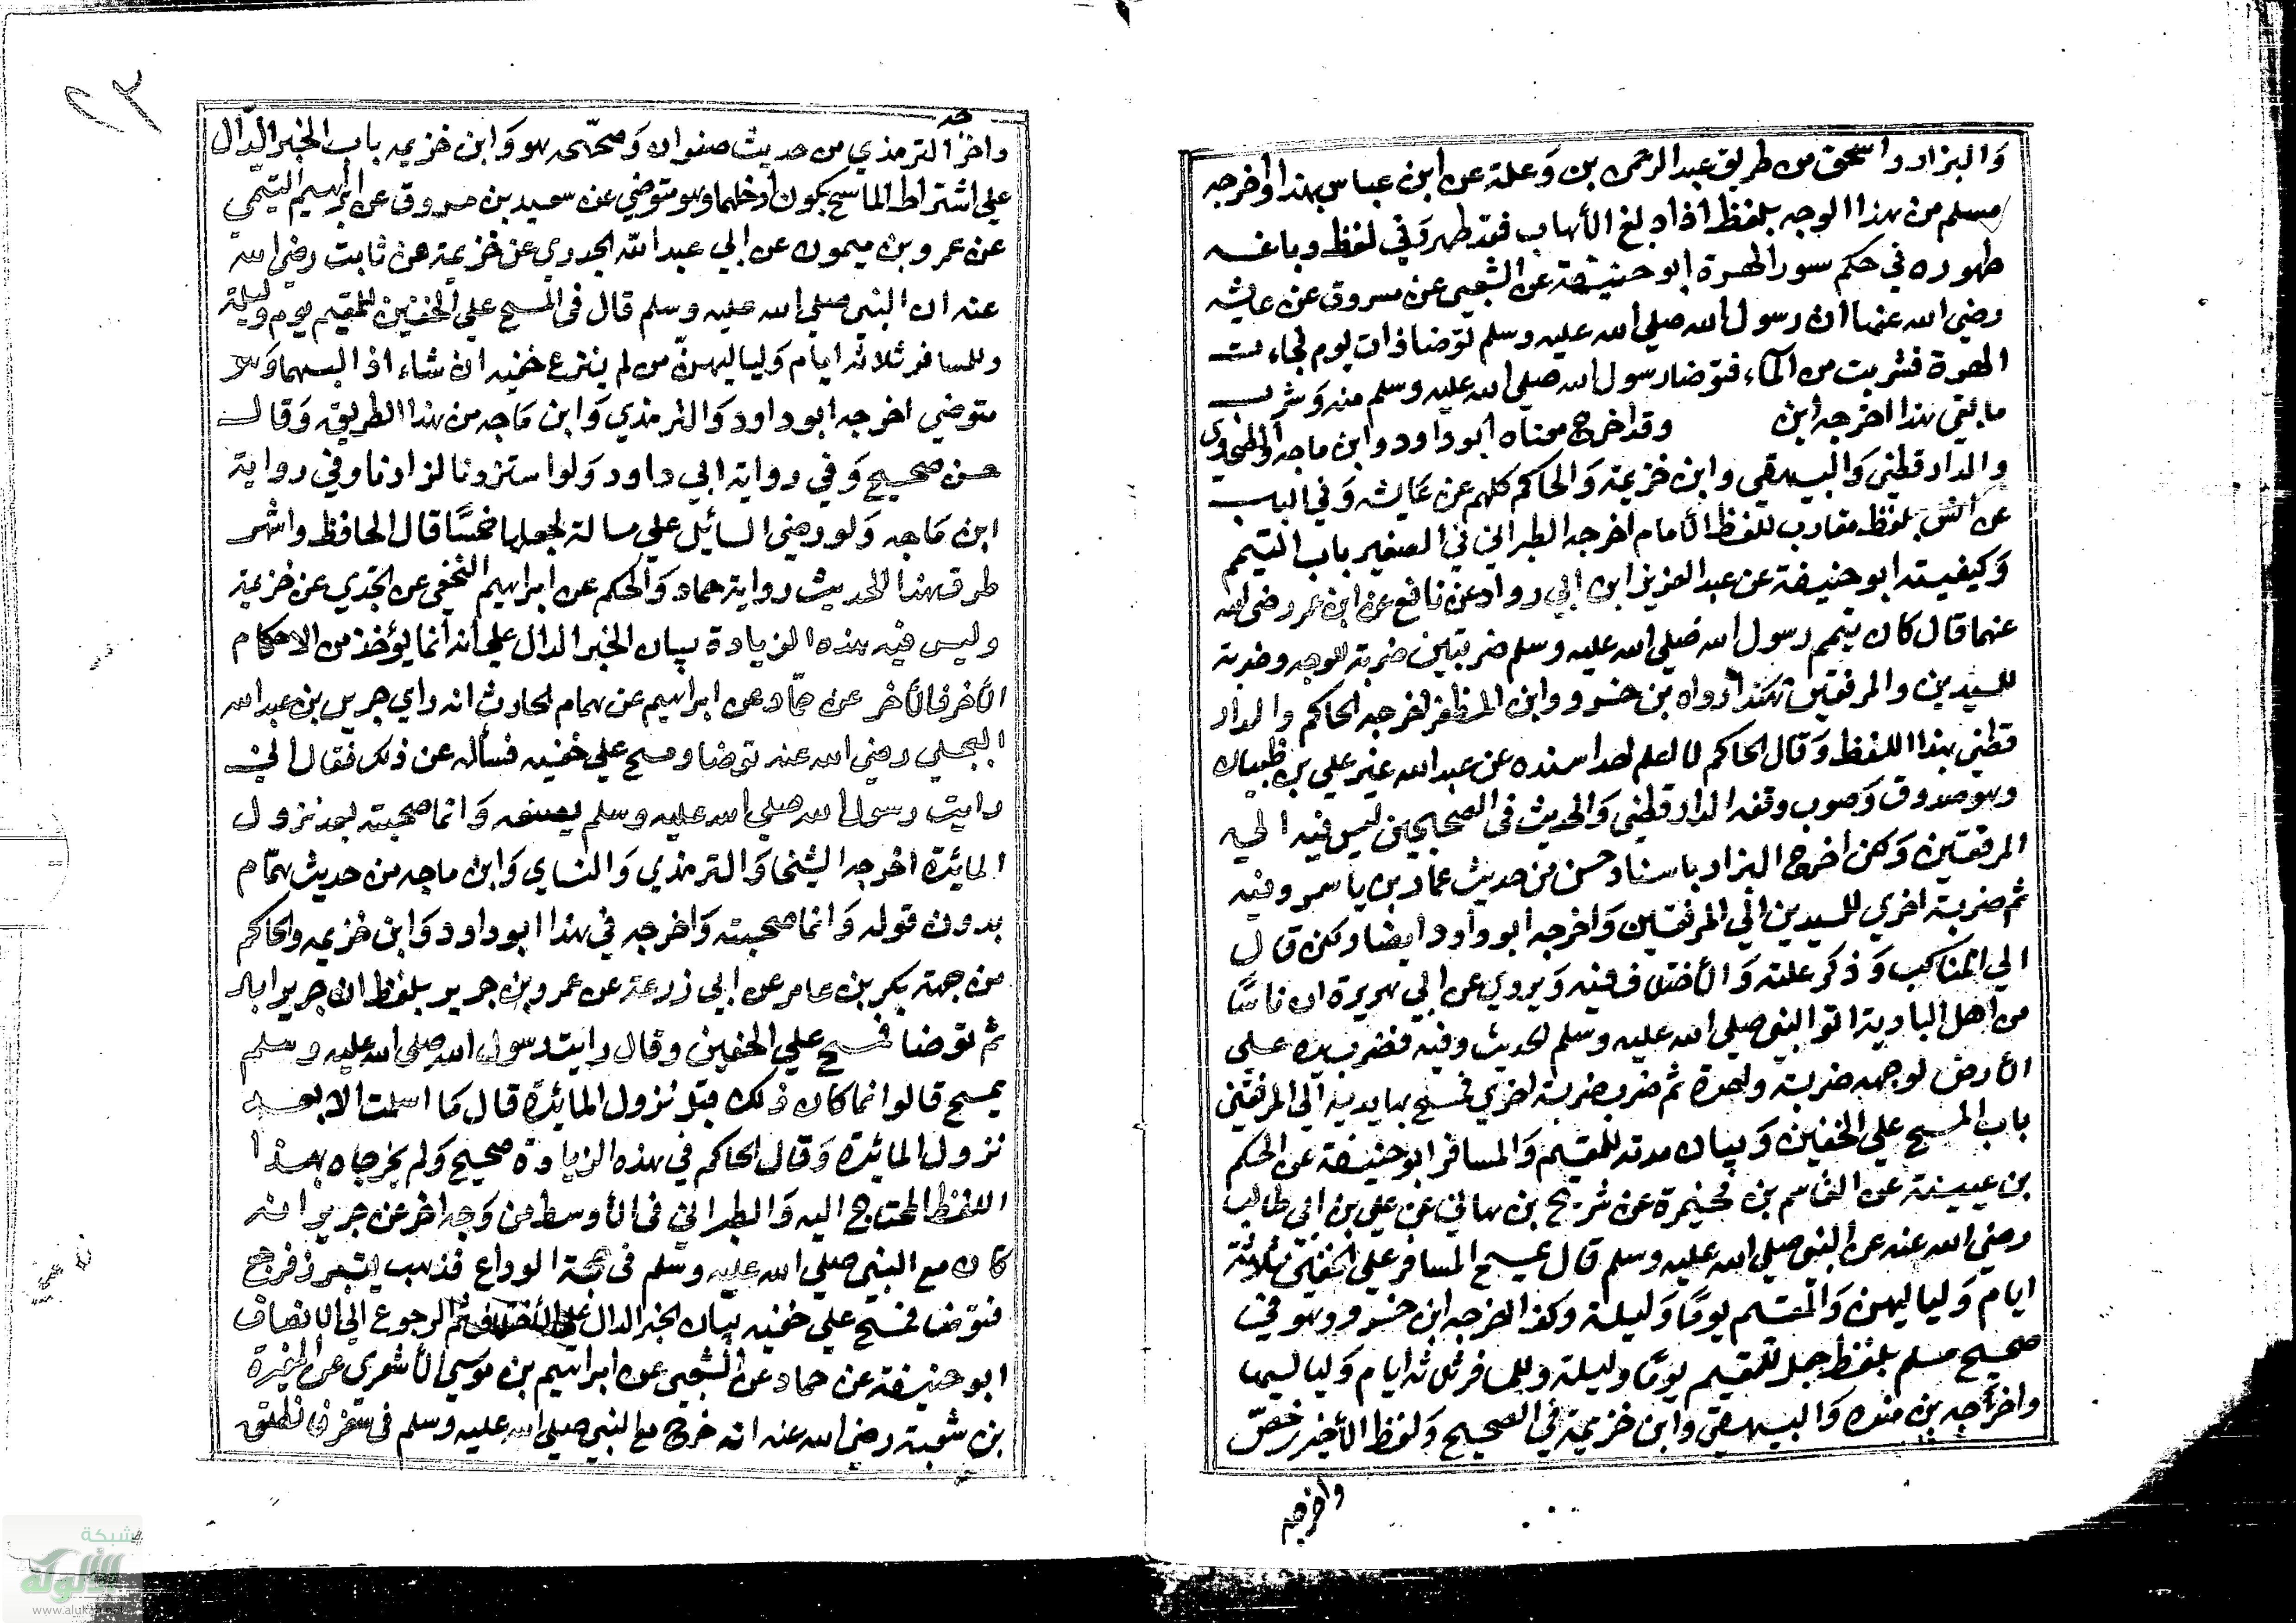 والبزار واسحق من طريق عبد الرحمن بن وعلة عن ابن عباس بهذا واخرجه
مسلم من هذا الوجه بلفظ اذا دبغ الأهاب فقد طهر وفي لفظ دباغه
طهوره في حكم سور الهرة ابو حنيفة عن الشعبي عن مسروق عن عايشه
رضي الله عنها ان رسول الله صلي الله عليه وسلم توضا ذات يوم فجاءت
الهرة فشربت من الماء فتوضا رسول الله صلي الله عليه وسلم منه وشرب
ما بقي هذا اخرجه ابن وقد اخرج معناه ابو داود وابن ماجه والطحاوي
والدارقطني والبيهقي وابن خزيمة والحاكم كلهم عن عايشه وفي الباب
عن انس بلفظ مقارب للفظ الأمام اخرجه الطبراني في الصغير باب التيمم
وكيفيته ابو حنيفة عن عبد العزيز ابن ابي رواد عن نافع عن ابن عمر رضي الله
عنهما قال كان تيمم رسول الله صلي الله عليه وسلم ضربتين ضربة للوجه وضربة
لليدين والمرفقين هكذا رواه بن خسرو وابن المظفر اخرجه الحاكم والدار
قطني بهذا اللفظ وقال الحاكم لا اعلم احدا سنده عن عبد الله غير علي بن ظبيان
وهو صدوق وصوب وقفه الدارقطني والحديث في الصحيحين ليس فيه الي
المرفقين ولكن اخرج البزار باسناد حسن من حديث عمار بن ياسر وفيه
ثم ضربة اخري لليدين الي المرفقين واخرجه ابو داود ايضا ولكن قال
الي المناكب وذكر علته والأختلاف فيه ويروي عن ابي هريرة ان ناسًا
من اهل البادية اتوا النبي صلي الله عليه وسلم الحديث وفيه فضرب بيده علي
الأرض لوجهه ضربة واحدة ثم ضرب ضربة اخري فمسح بها يديه الي المرفقين
باب المسح علي الخفين وبيان مدته للمقيم والمسافر ابو حنيفة عن الحكم
بن عيينة عن القاسم بن مخيمرة عن شريح بن هاني عن علي بن ابي طالب
رضي الله عنه عن النبي صلي الله عليه وسلم قال يمسح المسافر علي الخفين ثلاثة
ايام ولياليهن والمقيم يومًا وليلة وكذا اخرجه ابن خسرو وهو في
صحيح مسلم بلفظ جعل للمقيم يومًا وليلة وللمسافر ثلاثة ايام ولياليها
واخرجه بن منده والبيهقي وابن خزيمة في الصحيح ولفظ الأخير رخص
واخرجه
٢٣
واخرجه الترمذي من حديث صفوان وصححه هو وابن خزيمه باب الخبر الدّال
علي اشتراط الماسح بكون ادخلهما وهو متوضي عن سعيد بن مسروق عن ابراهيم التيمي
عن عمرو بن ميمون عن ابي عبد الله الجدري عن خزيمة بن ثابت رضي الله
عنه ان النبي صلي الله عليه وسلم قال في المسح علي الخفين للمقيم يوم وليلة
وللمسافر ثلاثه ايام ولياليهنّ من لم ينزع خفيه ان شاء اذا لبسهما وهو
متوضي اخرجه ابو داود والترمذي وابن ماجه من هذا الطريق وقال
حسن صحيح وفي رواية ابي داود ولو استزدنا لزادنا وفي رواية
ابن ماجه ولو رضي السايل علي مسالة لجعلها خمسًا قال الحافظ واشهر
طرق هذا الحديث رواية حماد والحكم عن ابراهيم النخعي عن الجدي عن خزيمة
وليس فيه هذه الزيادة بيان الخبر الدال علي انه انما يؤخذ من الاحكام
الأخر فالأخر عن حمّاد عن ابراهيم عن همام الحارث انه راي جرير بن عبد الله
البجلي رضي الله عنه توضا ومسح علي خفيه فسأله عن ذلك فقال اني
رايت رسول الله صلي الله عليه وسلم يصنعه وانما صحبته بعد نزول
المائدة اخرجه الشيخا والترمذي والنساي وابن ماجه من حديث همّام
بدون قوله وانما صحبته واخرجه في هذا ابو داود وابن خزيمه والحاكم
من جهة بكر بن عامر عن ابي زرعة عن عمرو بن جرير بلفظ ان جريرا بال
ثم توضا فمسح علي الخفين وقال رايت رسول الله صلي الله عليه وسلم
يمسح قالوا انما كان ذلك قبل نزول المائدة قال ما اسلمت الا بعد
نزول المائدة وقال الحاكم في هذه الزيادة صحيح ولم يخرجاه بهذا
اللفظ المحتاج اليه والطبراني في الأوسط من وجه اخر عن جرير انه
كان مع النبي صلي الله عليه وسلم في حجة الوداع فذهب يتبرز فرجع
فتوضا فمسح علي خفيه بيان الخبر الدال علي الأختلاف ثم الرجوع الي الانصاف
ابو حنيفة عن حماد عن الشعبي عن ابراهيم بن موسي الأشعري عن المغيرة
بن شعبة رضي الله عنه انه خرج مع النبي صلي الله عليه وسلم في سفر فانطلق
شبكة
الألوكة
www.alukah.net